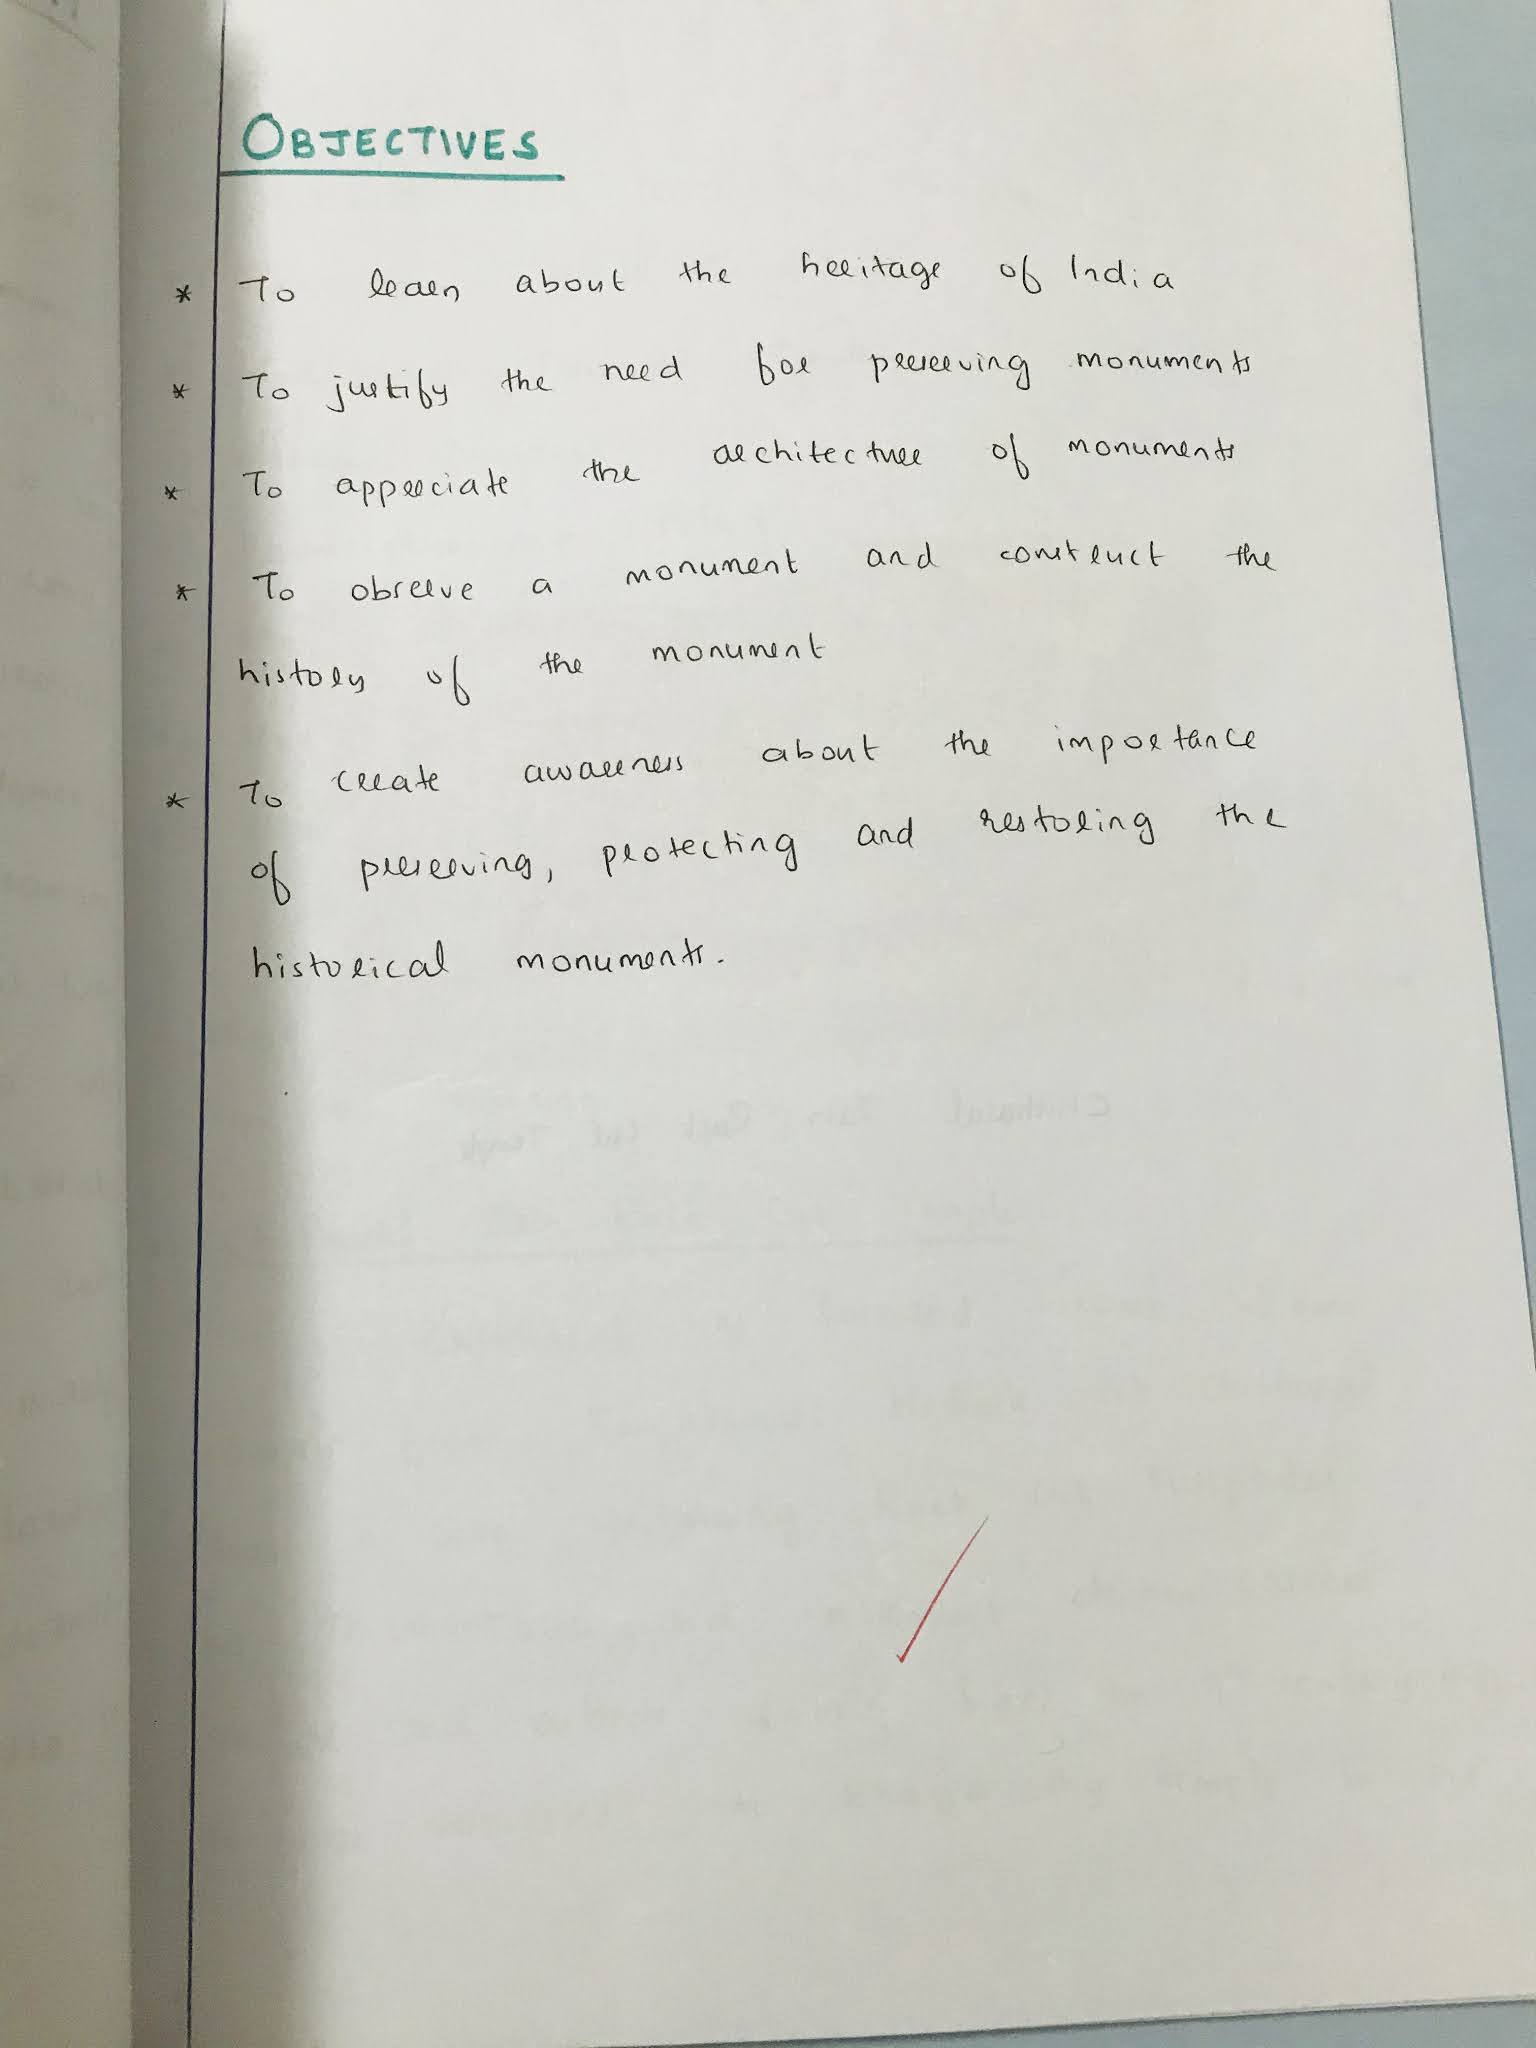 OBJECTIVES
* To learn about the heritage of India
* To justify the need for preserving monuments
* To appreciate the architecture of monuments
* To observe a monument and construct the
history of the monument
* To create awareness about the importance
of preserving, protecting and restoring the
historical monuments.